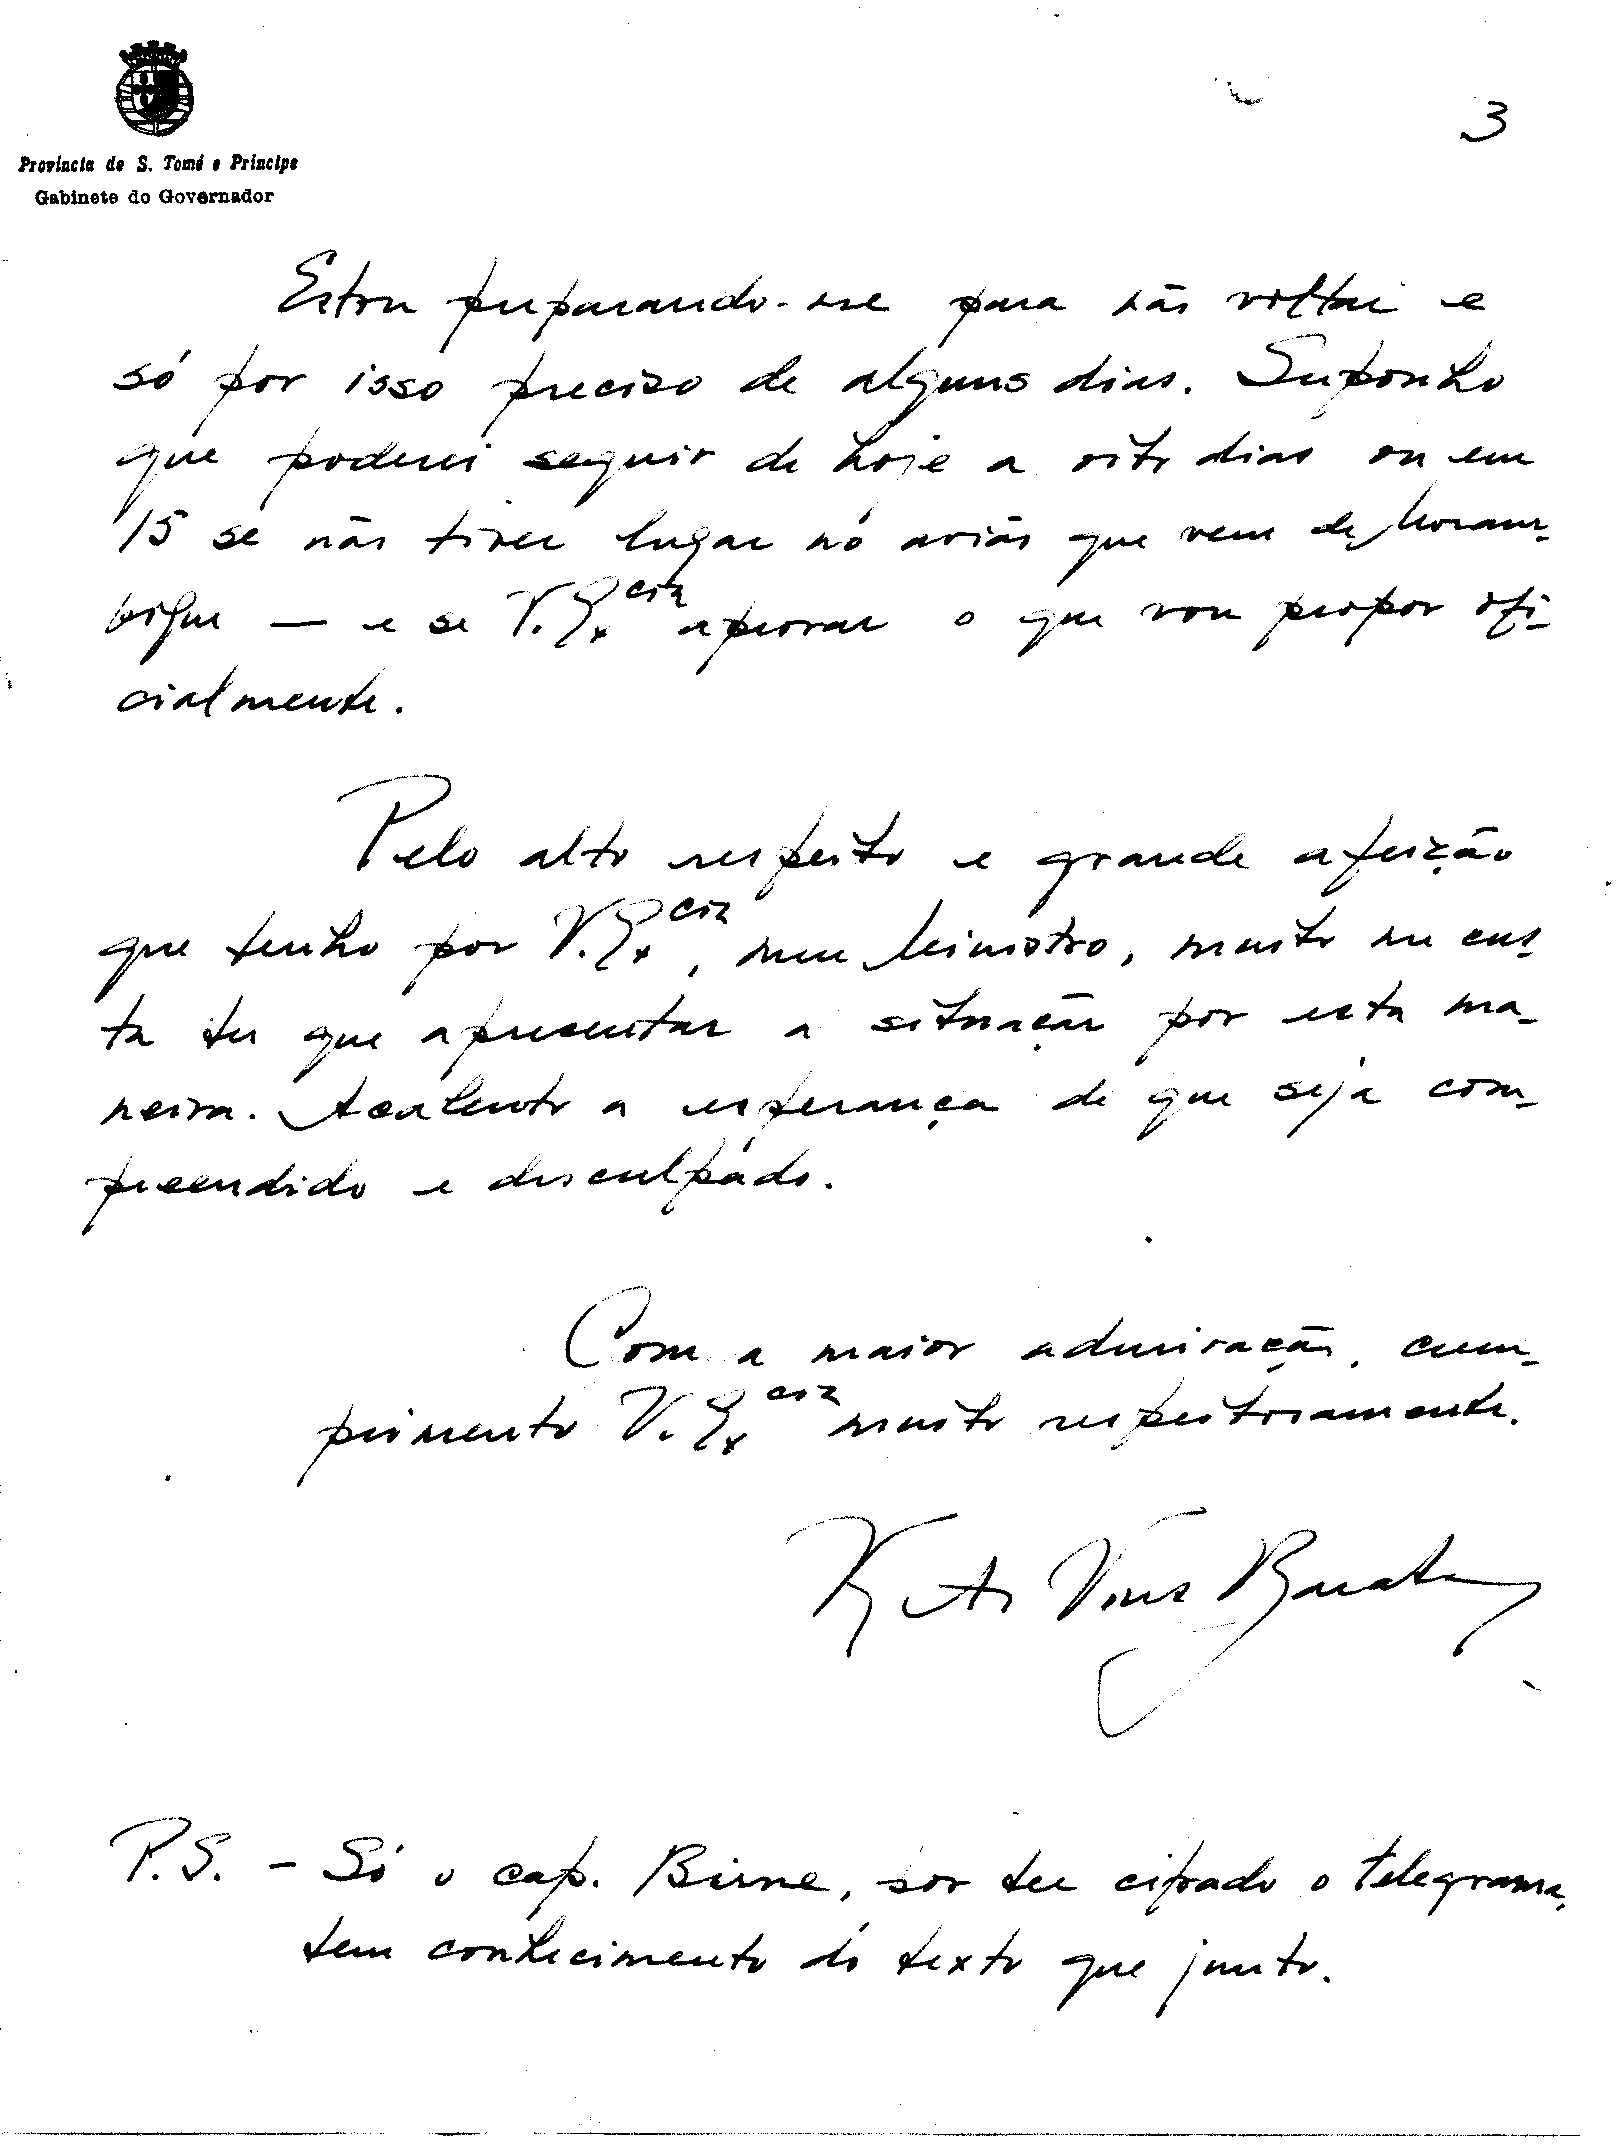 3
Provincia de S. Tomé e Príncipe
Gabinete do Governador
Estou preparando-me para não voltar e
só por isso preciso de alguns dias. Suponho
que poderei seguir de hoje a oito dias ou em
15 se não tiver lugar no avião que vem de Moçam-
bique — e se V. Ex.cia aprovar o que vou propor ofi-
cialmente.
Pelo alto respeito e grande afeição
que tenho por V. Ex.cia, meu Ministro, muito me cus-
ta ter que apresentar a situação por esta ma-
neira. Acalento a esperança de que seja com-
preendido e desculpado.
Com a maior admiração, cum-
primento V. Ex.cia muito respeitosamente.
P.S. - Só o cap. Birne, por ter cifrado o telegrama,
tem conhecimento do texto que junto.